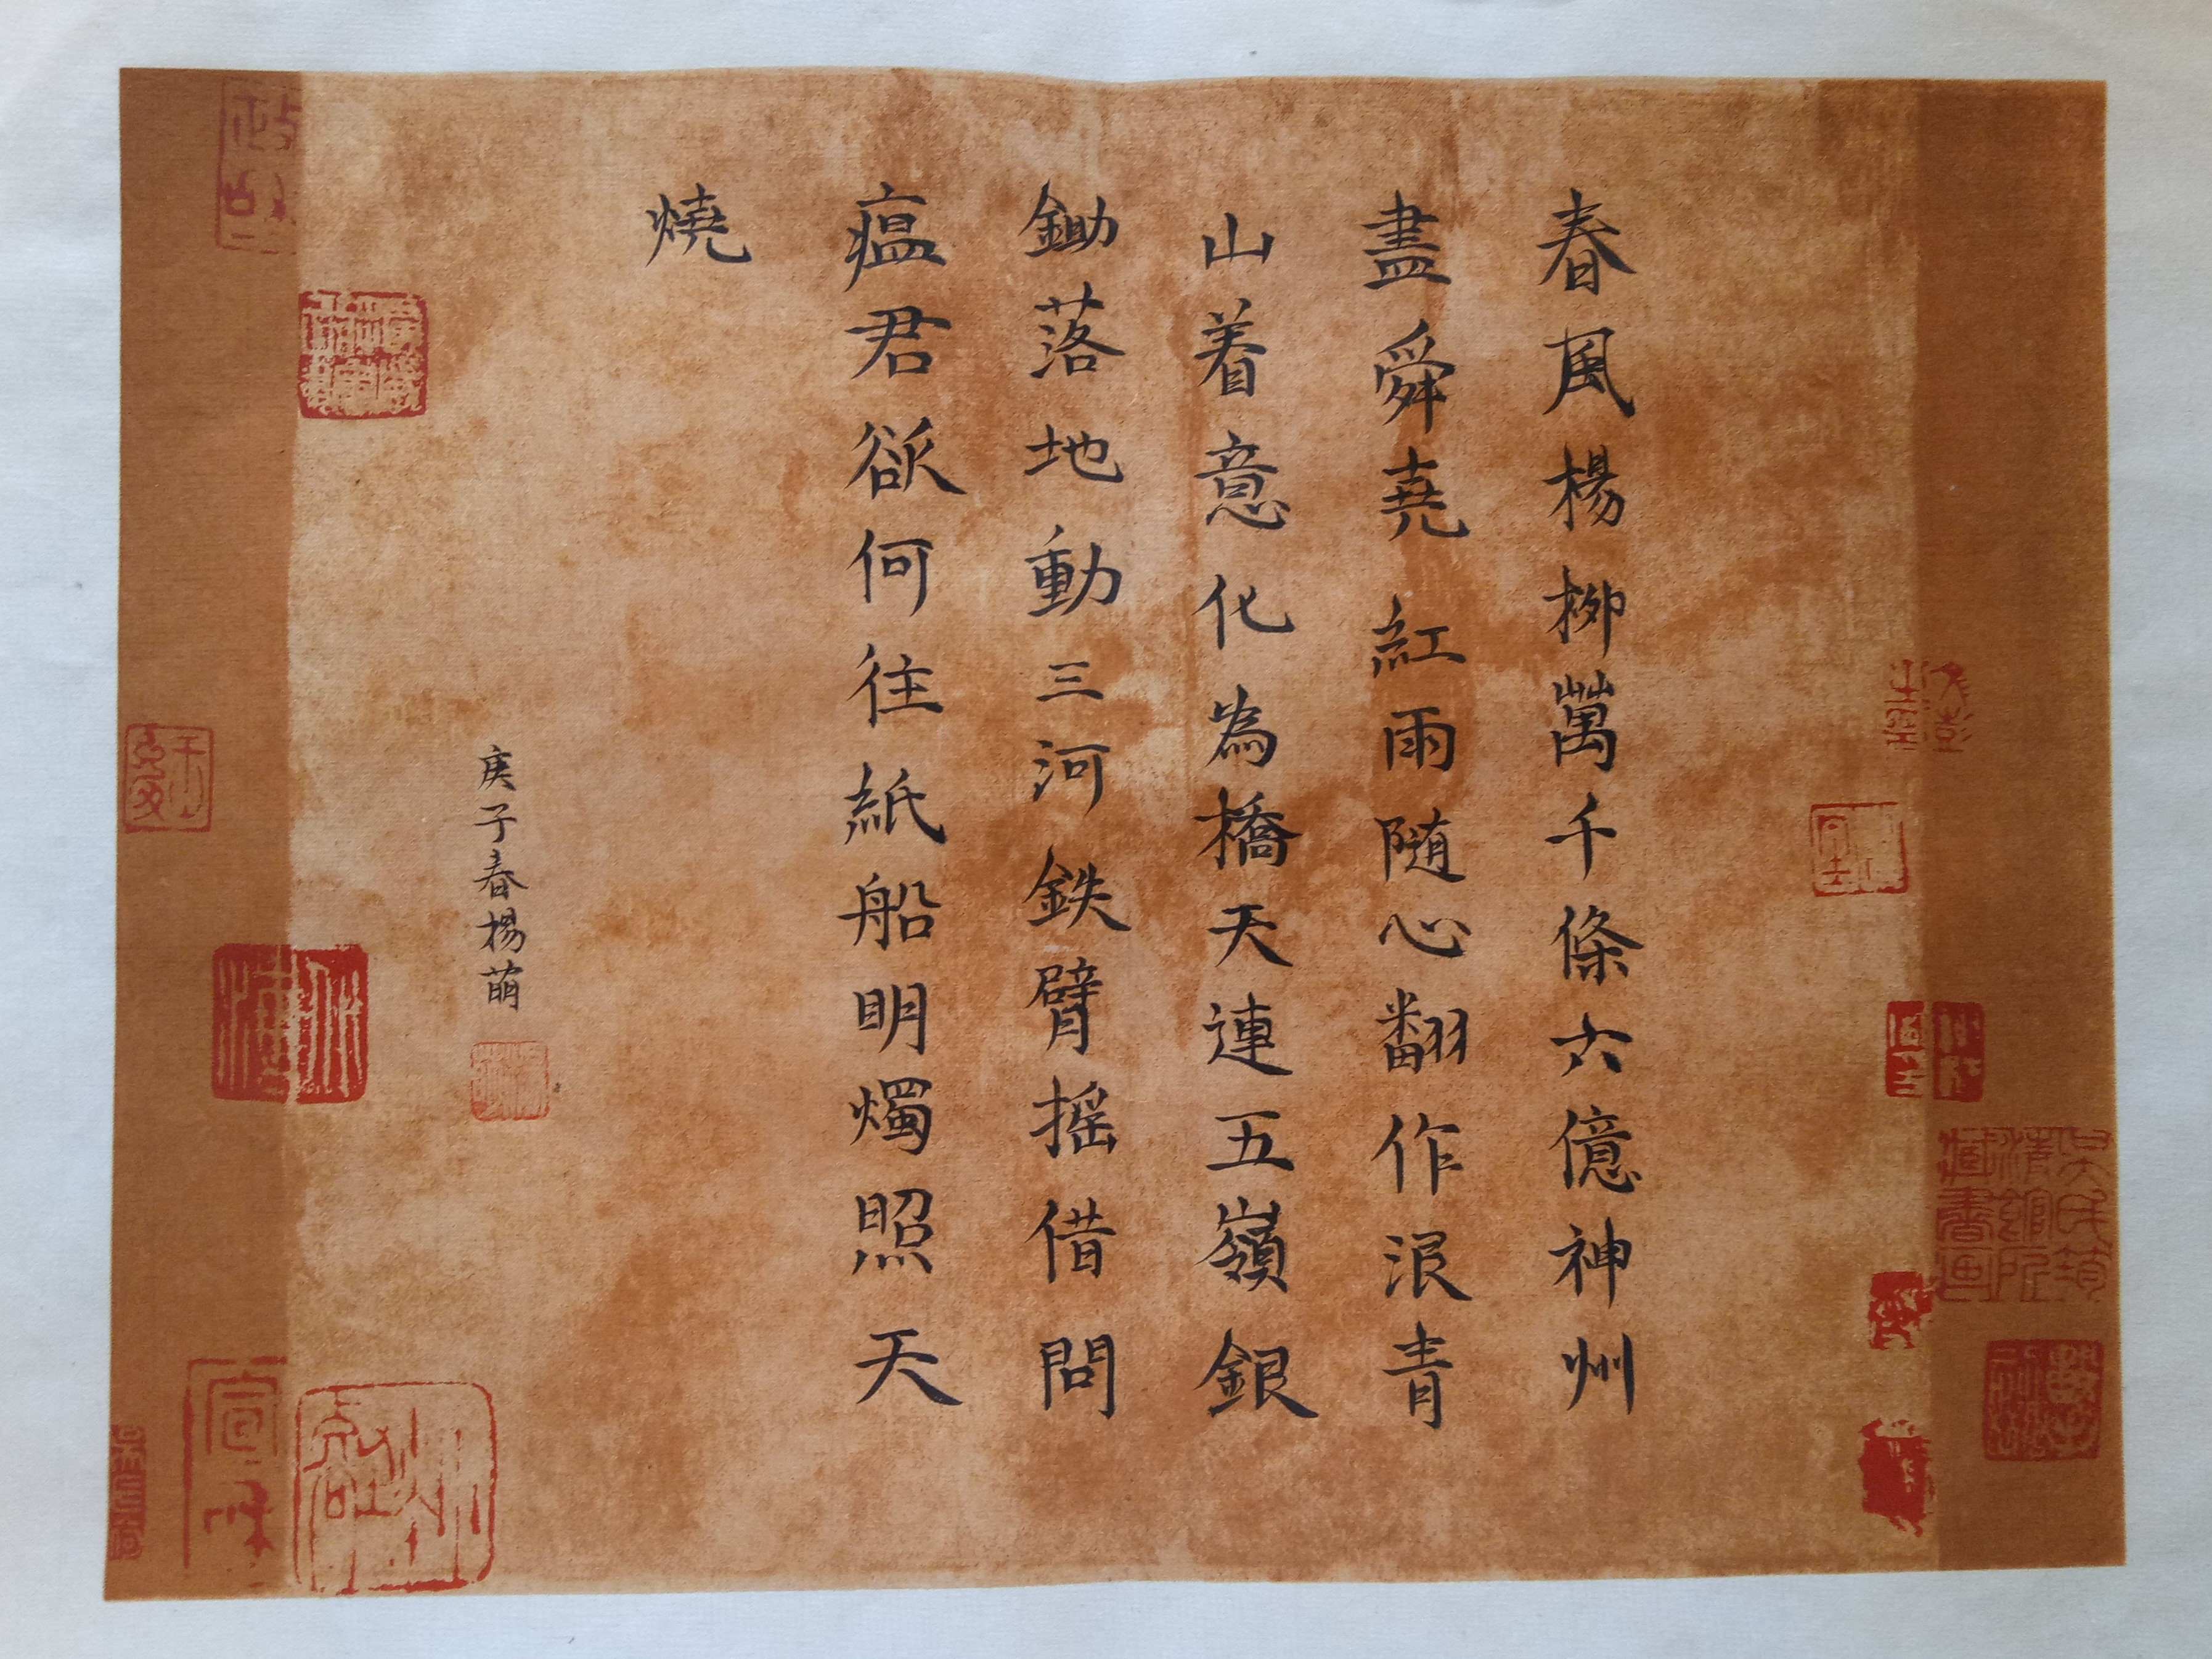 春風楊柳萬千條六億神州
盡舜堯紅雨随心翻作浪青
山着意化為橋天連五嶺銀
鋤落地動三河鉄臂摇借問
瘟君欲何往紙船明燭照天
燒
庚子春楊萌